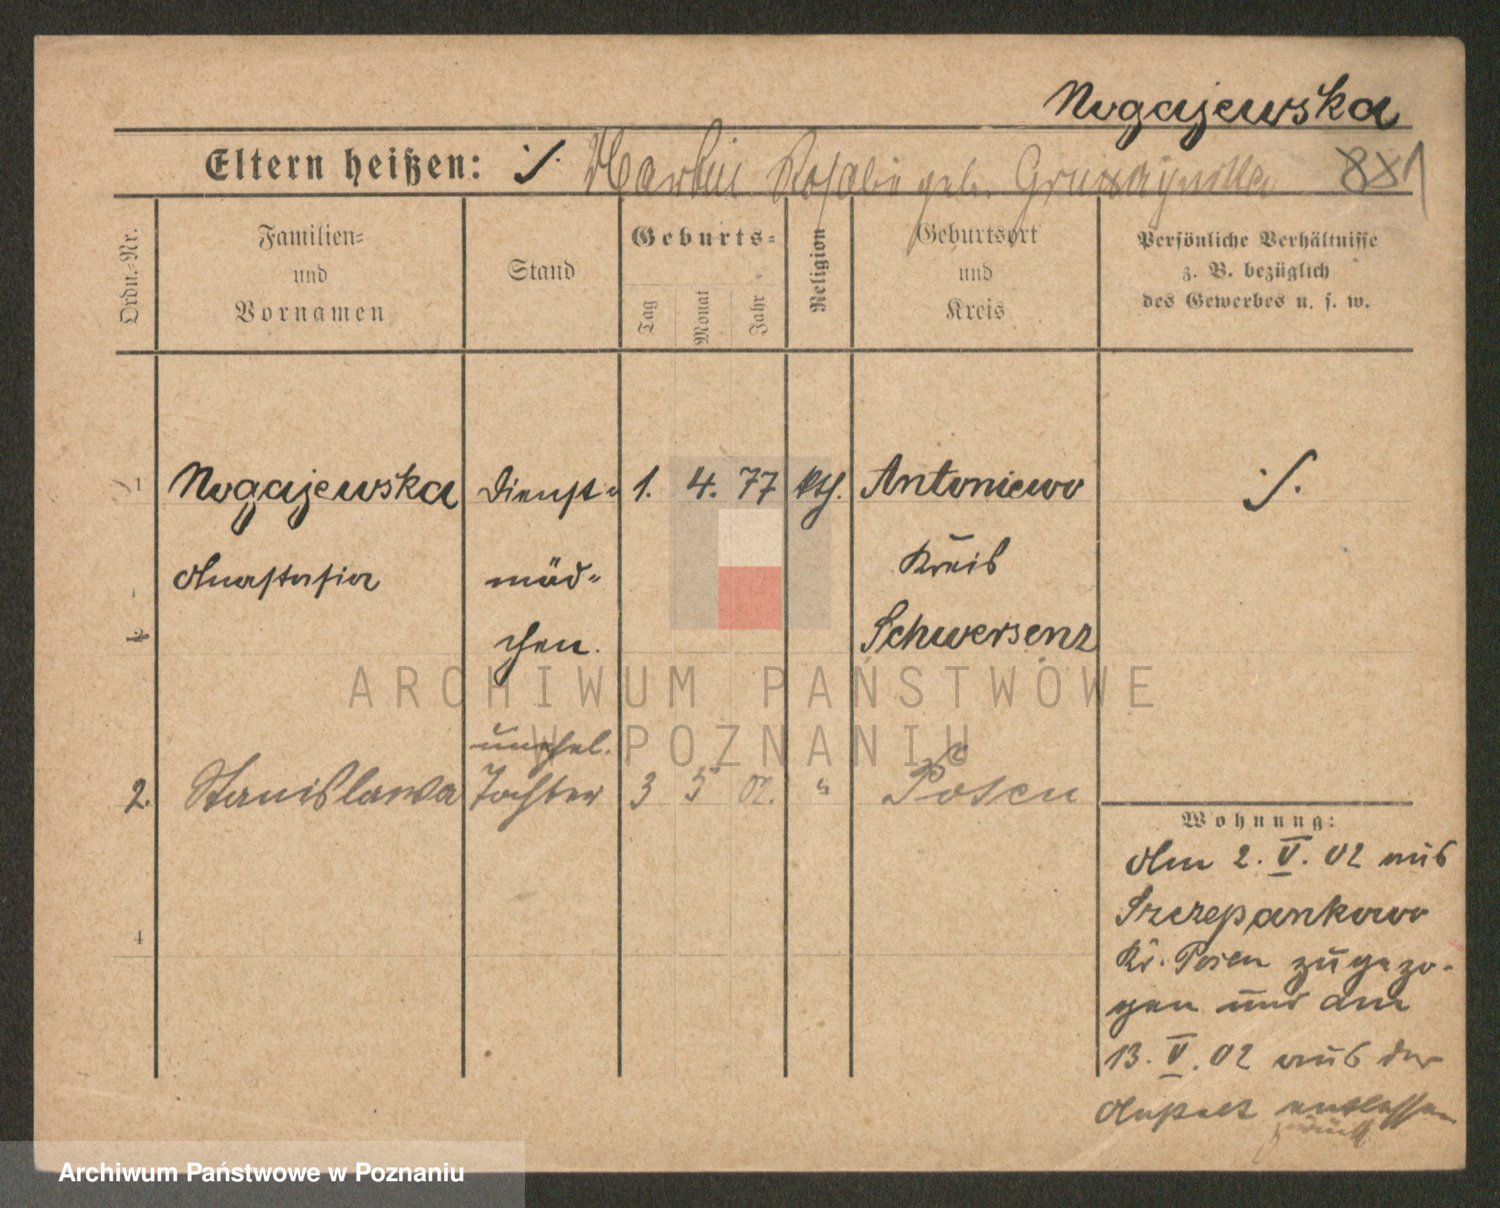 Nogajewska
Eltern heißen: ./. Martin Rosalie geb.
881
Ordn.-Nr.
Familien-
und
Vornamen
Stand
Geburts-
Tag
Monat
Jahr
Religion
Geburtsort
und
Kreis
Persönliche Verhältnisse
z. B. bezüglich
des Gewerbes u. s. w.
1 Nogajewska Dienst- 1. 4. 77 kth. Antoniewo ./.
Anastasia mäd- Kreis
2 chen. Schwersenz
unehel.
2. Stanislawa Tochter 3 5 02. " Posen
4
Wohnung:
Am 2. V. 02 aus
Szczepankowo
Kr. Posen zugezo-
gen und am
13. V. 02 aus der
Anstalt entlassen
ARCHIWUM PAŃSTWOWE
W POZNANIU
Archiwum Państwowe w Poznaniu